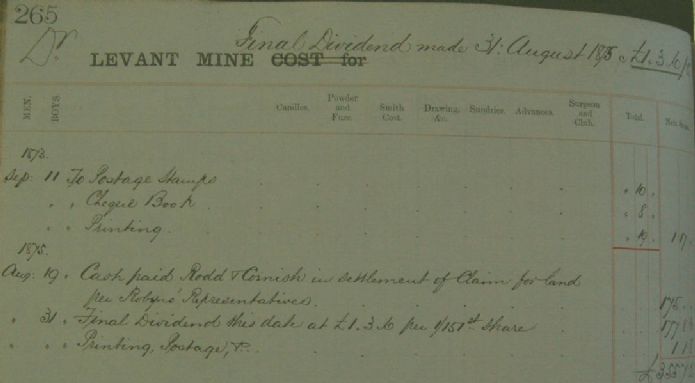 265
Dr. Final Dividend made 31st August 1875 £1.3.6 p
LEVANT MINE COST for
MEN. BOYS. Candles. Powder and Fuze. Smith Cost. Drawing, &c. Sundries. Advances. Surgeon and Club. Total.
1873.
Sep. 11 To Postage Stamps " 10 "
" " Cheque Book " 8 "
" " Printing " 19 "
1875.
Aug. 19 " Cash paid Rodd & Cornish in settlement of Claim for land
per Robyns' Representatives. 175
" 31 " Final Dividend this date at £1.3.6 per 1/151st Share
" " " Printing, Postage, &c.